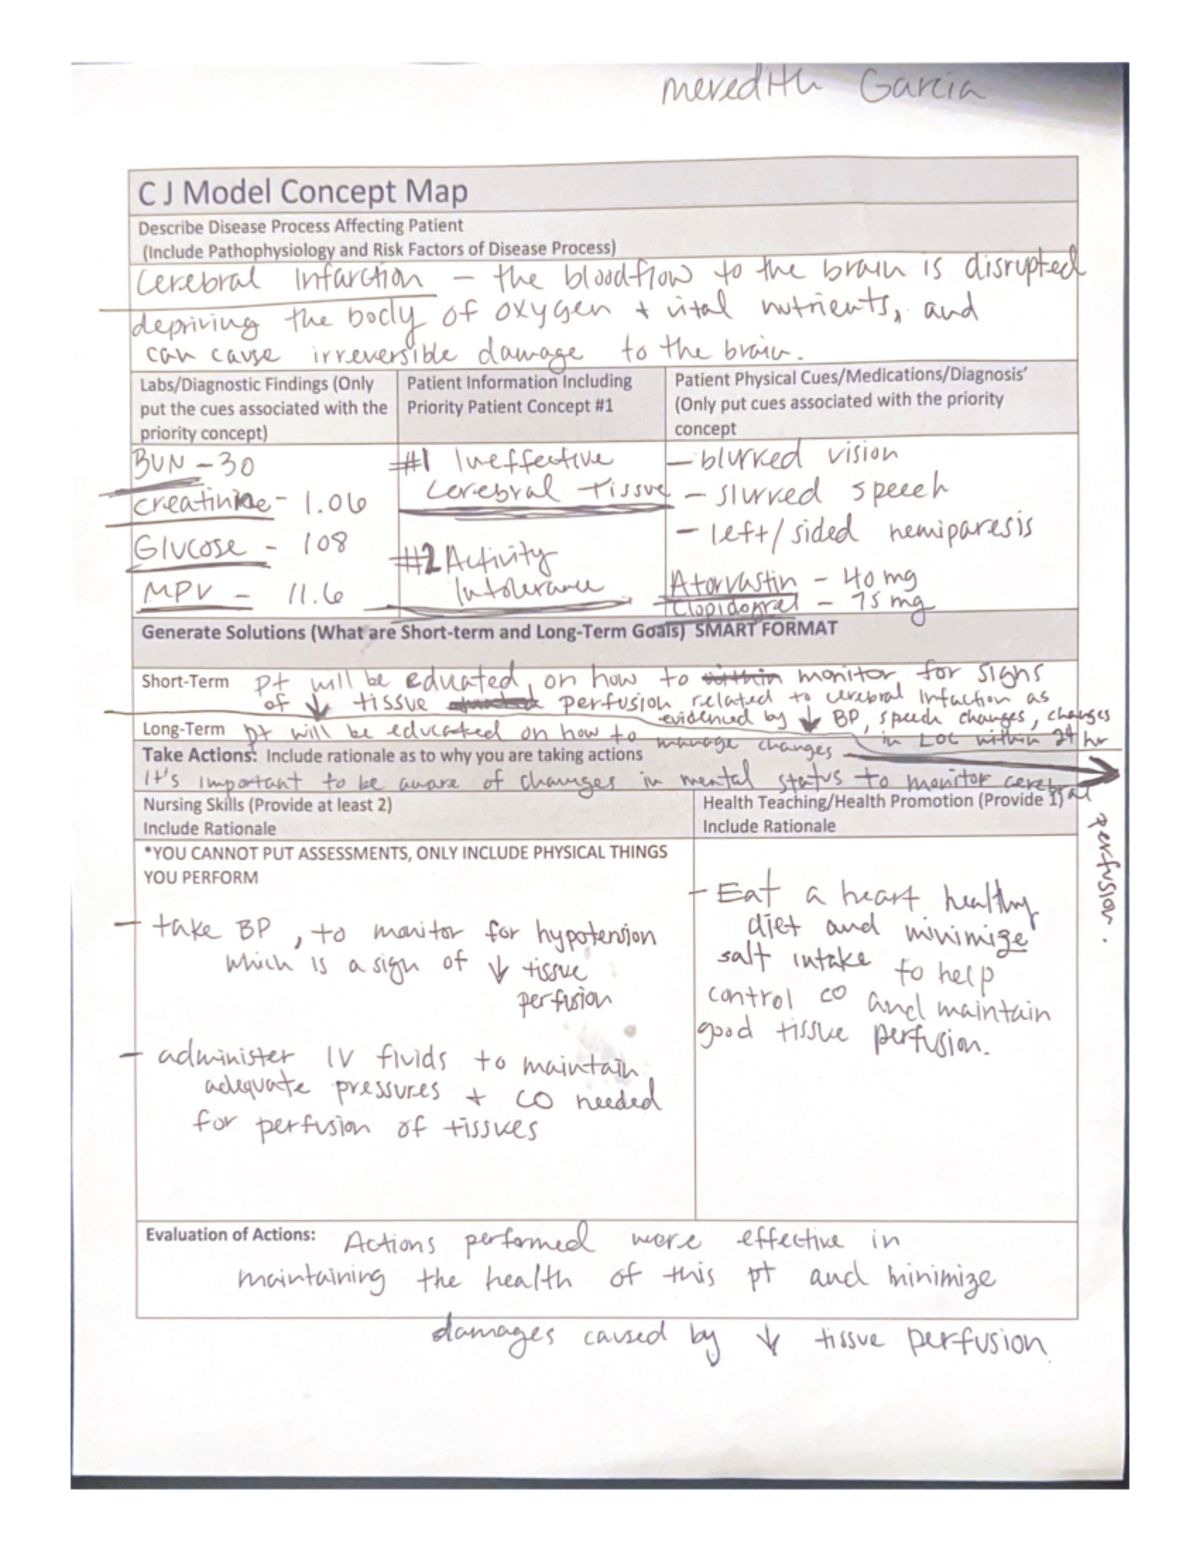 meredith Garcia
C J Model Concept Map
Describe Disease Process Affecting Patient
(Include Pathophysiology and Risk Factors of Disease Process)
Cerebral Infarction – the bloodflow to the brain is disrupted
depriving the body of oxygen + vital nutrients, and
can cause irreversible damage to the brain.
Labs/Diagnostic Findings (Only
put the cues associated with the
priority concept)
Patient Information Including
Priority Patient Concept #1
Patient Physical Cues/Medications/Diagnosis'
(Only put cues associated with the priority
concept
BUN – 30
creatinine – 1.06
Glucose – 108
MPV – 11.6
#1 Ineffective
cerebral tissue
#2 Activity
Intolerance
– blurred vision
– slurred speech
– left/sided hemiparesis
Atorvastin – 40 mg
Clopidogrel – 75 mg
Generate Solutions (What are Short-term and Long-Term Goals) SMART FORMAT
Short-Term pt will be eduated, on how to within monitor for signs
of ↓ tissue perfusion related to cerebral Infaction as
evidenced by ↓ BP, speech changes, changes
in LOC within 24 hr
Long-Term pt will be educated on how to manage changes
Take Actions: Include rationale as to why you are taking actions
It's important to be aware of changes in mental status to monitor cerebral
perfusion.
Nursing Skills (Provide at least 2)
Include Rationale
Health Teaching/Health Promotion (Provide 1)
Include Rationale
*YOU CANNOT PUT ASSESSMENTS, ONLY INCLUDE PHYSICAL THINGS
YOU PERFORM
– take BP, to monitor for hypotension
which is a sign of ↓ tissue
perfusion
– administer IV fluids to maintain
adequate pressures + CO needed
for perfusion of tissues
– Eat a heart healthy
diet and minimize
salt intake to help
control CO and maintain
good tissue perfusion.
Evaluation of Actions: Actions performed were effective in
maintaining the health of this pt and minimize
damages caused by ↓ tissue perfusion